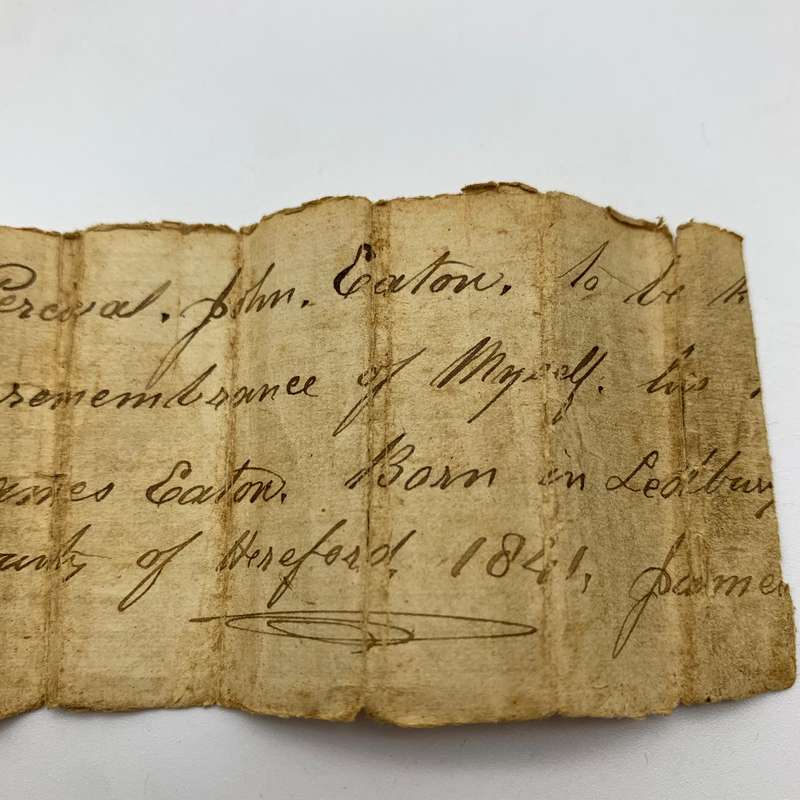 Percival. John. Eaton. to be
remembrance of Myself. his
ames Eaton. Born in Ledbury
unty of Hereford. 1841, James